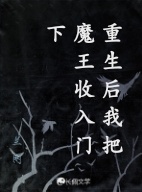 重生后我把
魔王收入门
下
长佩文学